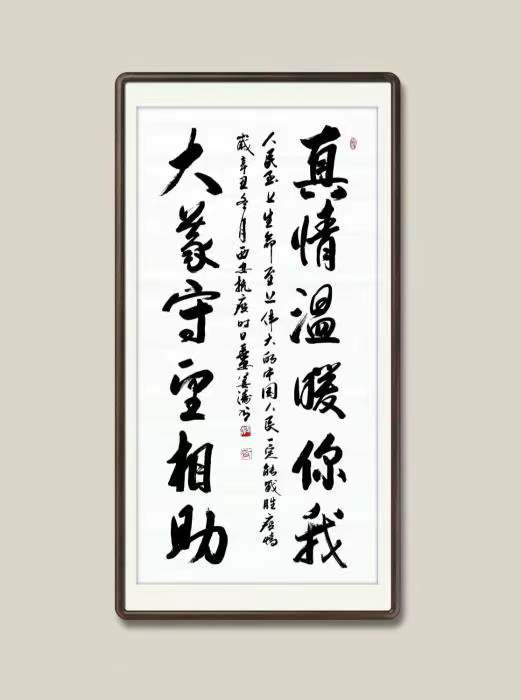 真情温暖你我
人民至上生命至上伟大的中国人民一定能战胜疫情
岁辛丑冬月西安抗疫时日
大义守望相助